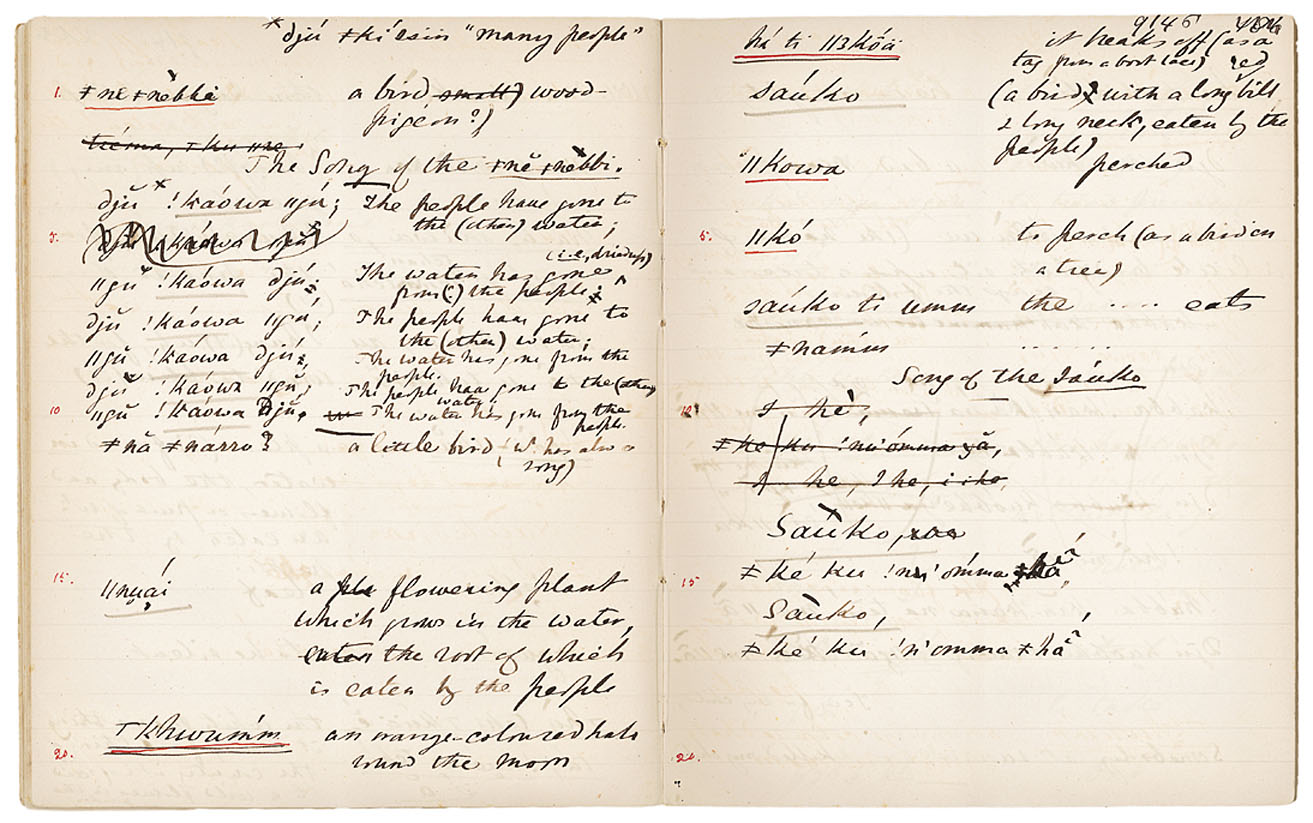 * djú ǂkí csin "many people"
1. ǂnĕ ǂnĕbbi a bird small) wood-
pigeon?)
The Song of the ǂnĕ ǂnĕbbi.
djŭ * !kaówa ǁgú; The people have gone to
the (other) water;
5.
(i.e., dried up)
ǁgŭ !káówa djú; The water has gone
from (:) the people;
djŭ !káówa ǁgú; The people have gone to
the (other) water;
ǁgŭ !káówa djú; The water has gone from the
people.
djŭ !káówa ǁgŭ; The people have gone to the (other)
water.
10 ǁgŭ !káówa djŭ. The water has gone from the
people.
ǂnă ǂnárro? a little bird (W. has also a
song)
15. ǁnyái a flowering plant
which grows in the water,
eaten the root of which
is eaten by the people
T Khwúmm an orange-coloured halo
20. round the moon
9146
há ti ǁ3kōä it breaks off (as a
tag from a boot lace) red
saúko (a bird with a long bill
& long neck, eaten by the
people)
ǁkowa perched
5. ǁkó to perch (as a bird on
a tree)
saúko ti umm the .... eats
ǂnamím ......
Song of the Saúko
10. I hé,
ǂke ku !nu'ómma
I he, I he, i he,
Saúko,
15 ǂké ku !nu'ómma ǂhá
Saúko,
ǂké ku !n'omma ǂhá
20.